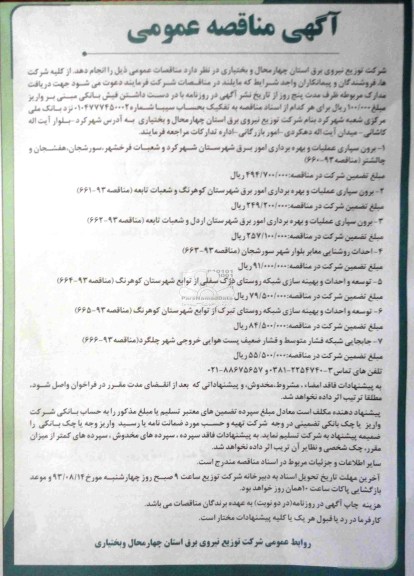 آگهی مناقصه عمومی
شرکت توزیع نیروی برق استان چهارمحال و بختیاری در نظر دارد مناقصات عمومی ذیل را انجام دهد. از کلیه شرکت
ها، فروشندگان و پیمانکاران واجد شرایط که مایلند در مناقصات شرکت فرمایند دعوت می شود جهت دریافت
مدارک مربوطه ظرف مدت پنج روز از تاریخ نشر آگهی در روزنامه با در دست داشتن فیش بانکی مبنی بر واریز
مبلغ ۱۰۰/۰۰۰ ریال برای هر کدام از اسناد مناقصه به تفکیک بحساب سیبا شماره ۰۱۰۴۷۷۷۴۵۰۰۰۲ نزد بانک ملی
مرکزی شعبه شهرکرد بنام شرکت توزیع نیروی برق استان چهارمحال و بختیاری به آدرس شهرکرد-بلوار آیت اله
کاشانی - میدان آیت اله دهکردی -امور بازرگانی -اداره تدارکات مراجعه فرمایند.
۱- برون سپاری عملیات و بهره برداری امور برق شهرستان شهرکرد و شعبات فرخشهر،سورشجان،هفشجان و
چالشتر (مناقصه ۹۳-۶۶۰)
مبلغ تضمین شرکت در مناقصه:۴۹۴/۷۰۰/۰۰۰ ریال
۲- برون سپاری عملیات و بهره برداری امور برق شهرستان کوهرنگ و شعبات تابعه (مناقصه ۹۳-۶۶۱)
مبلغ تضمین شرکت در مناقصه:۲۴۹/۲۰۰/۰۰۰ ریال
۳- برون سپاری عملیات و بهره برداری امور برق شهرستان اردل و شعبات تابعه (مناقصه ۹۳-۶۶۲)
مبلغ تضمین شرکت در مناقصه:۲۵۷/۱۰۰/۰۰۰ ریال
۴-احداث روشنایی معابر بلوار شهر سورشجان (مناقصه ۹۳-۶۶۳)
مبلغ تضمین شرکت در مناقصه:۹۱/۰۰۰/۰۰۰ ریال
۵- توسعه و احداث و بهینه سازی شبکه روستای دزک سفلی از توابع شهرستان کوهرنگ (مناقصه ۹۳-۶۶۴)
مبلغ تضمین شرکت در مناقصه:۷۹/۵۰۰/۰۰۰ ریال
۶- توسعه و احداث و بهینه سازی شبکه روستای تبرک از توابع شهرستان کوهرنگ (مناقصه ۹۳-۶۶۵)
مبلغ تضمین شرکت در مناقصه:۸۴/۵۰۰/۰۰۰ ریال
۷- جابجایی شبکه فشار متوسط و فشار ضعیف پست هوایی خروجی شهر چلگرد(مناقصه ۹۳-۶۶۶)
مبلغ تضمین شرکت در مناقصه:۵۵/۵۰۰/۰۰۰ ریال
تلفن های تماس ۳-۲۲۵۴۷۴۰-۰۳۸۱ و ۸۸۶۷۵۶۵۷-۰۲۱
به پیشنهادات فاقد امضاء ، مشروط،مخدوش، و پیشنهاداتی که بعد از انقضای مدت مقرر در فراخوان واصل شود،
مطلقا ترتیب اثر داده نخواهد شد.
پیشنهاد دهنده مکلف است معادل مبلغ سپرده تضمین های معتبر تسلیم یا مبلغ مذکور را به حساب بانکی شرکت
واریز یا چک بانکی تضمینی در وجه شرکت تهیه و حسب مورد ضمانت نامه یا رسید واریز وجه یا چک بانکی را
ضمیمه پیشنهاد به شرکت تسلیم نماید. به پیشنهادات فاقد سپرده ، سپرده های مخدوش ، سپرده های کمتر از میزان
مقرر، چک شخصی و نظایر آن ترتیب اثر داده نخواهد شد.
سایر اطلاعات و جزئیات مربوط در اسناد مناقصه مندرج است.
آخرین مهلت تاریخ تحویل اسناد به دبیرخانه شرکت توزیع ساعت ۹ صبح روز چهارشنبه مورخ ۹۳/۰۸/۱۴ و موعد
بازگشایی پاکات ساعت ۱۰همان روز خواهد بود.
هزینه چاپ آگهی در روزنامه(در دو نوبت) به عهده برندگان مناقصات می باشد.
کارفرما در رد یا قبول هر یک یا کلیه پیشنهادات مختار است.
روابط عمومی شرکت توزیع نیروی برق استان چهارمحال وبختیاری